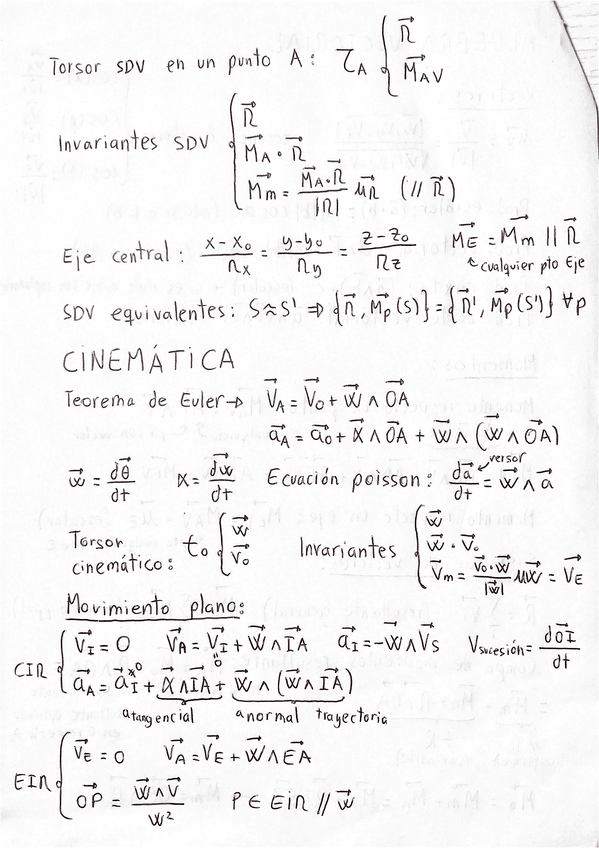 Torsor SDV en un punto A: τ⃗_A { R⃗
M⃗_AV
Invariantes SDV { R⃗
M⃗_A · R⃗
M⃗_m = (M⃗_A · R⃗)/|R| μ⃗_R (// R⃗)
Eje central: (x-x₀)/R_x = (y-y₀)/R_y = (z-z₀)/R_z M⃗_E = M⃗_m || R⃗
cualquier pto Eje
SDV equivalentes: S≈S' ⇒ {R⃗, M⃗_p(S)} = {R⃗', M⃗_p(S')} ∀p
CINEMÁTICA
Teorema de Euler→ V⃗_A = V⃗_O + W⃗ ∧ OA⃗
a⃗_A = a⃗_O + α⃗ ∧ OA⃗ + W⃗ ∧ (W⃗ ∧ OA⃗)
versor
w⃗ = dθ⃗/dt α = dw⃗/dt Ecuación poisson: da⃗/dt = W⃗ ∧ a⃗
Torsor cinemático: t_0 { W⃗
V⃗_0
Invariantes { W⃗
W⃗ · V⃗_0
V⃗_m = (V⃗_0 · W⃗)/|W⃗| μ⃗_W = V⃗_E
Movimiento plano:
CIR { V⃗_I = 0 V⃗_A = V⃗_I + W⃗ ∧ IA⃗ a⃗_I = -W⃗ ∧ V⃗_S V_sucesión = dOI⃗/dt
0
a⃗_A = a⃗_I + α ∧ IA⃗ + W⃗ ∧ (W⃗ ∧ IA⃗)
a_tangencial a_normal trayectoria
EIR { V⃗_E = 0 V⃗_A = V⃗_E + W⃗ ∧ EA⃗
OP⃗ = (W⃗ ∧ V⃗)/W² P ∈ EiR // w⃗